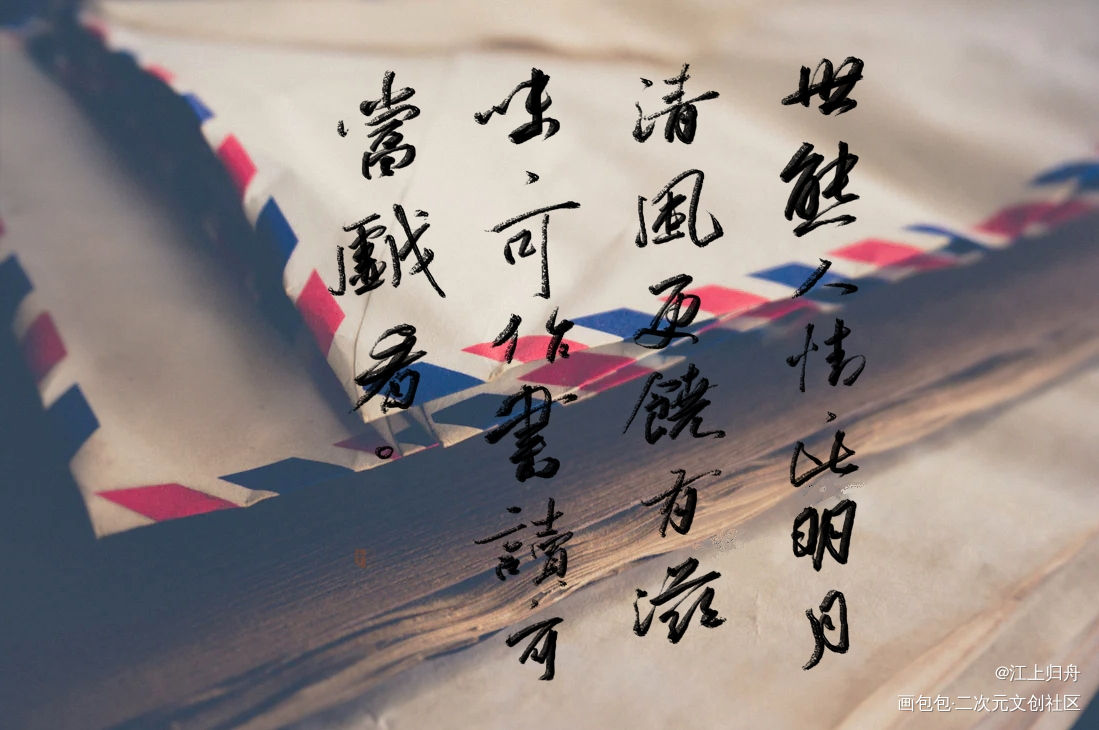 世態人情，比明月
清風更饒有滋
味；可作書讀，可
當戲看。
@江上归舟
画包包·二次元文创社区